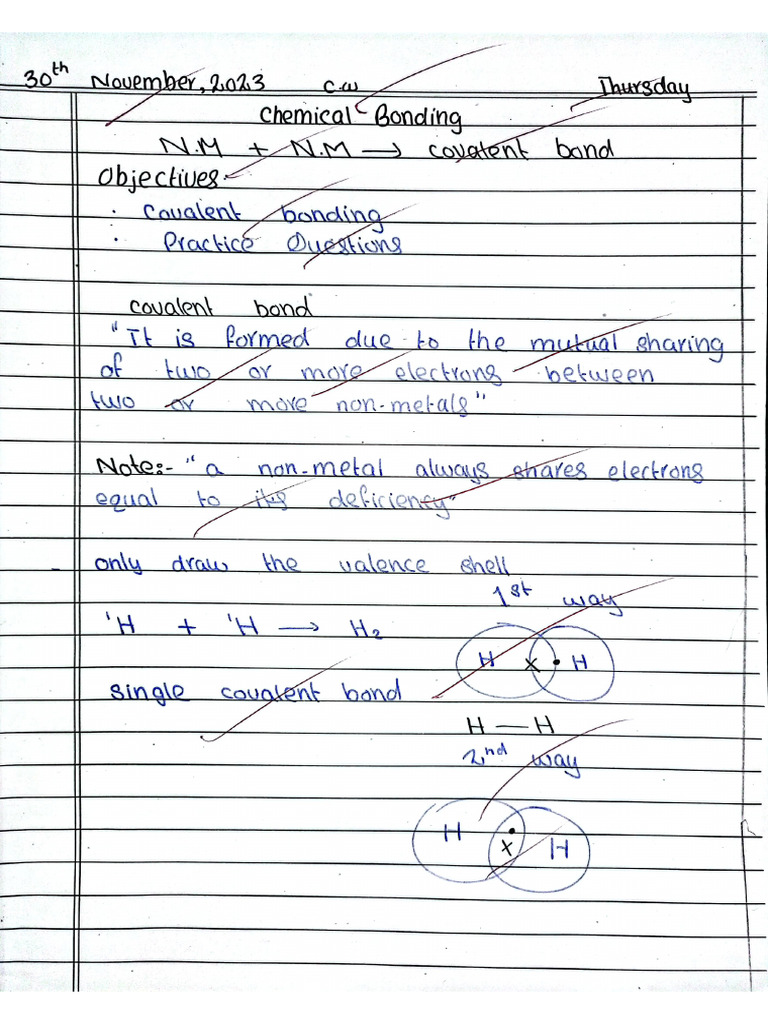 30th November, 2023 C.W Thursday
Chemical Bonding
N.M + N.M → covalent bond
Objectives:-
· Covalent bonding
· Practice Questions
covalent bond
"It is formed due to the mutual sharing
of two or more electrons between
two or more non-metals"
Note:- "a non-metal always shares electrons
equal to its deficiency"
only draw the valence shell
1st way
¹H + ¹H → H₂
H × • H
single covalent bond
H — H
2nd way
H • × H